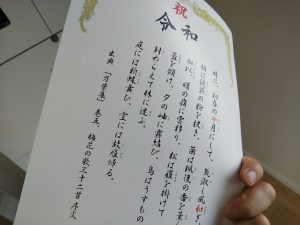 祝
令和
時に、初春の令月にして、気淑く風和ぎ
梅は鏡前の粉を披き、蘭は珮後の香を薫
加以、曙の嶺に雲移り、松は羅を掛けて
蓋を傾け、夕の岫に霧結び、鳥はうすもの
封めらえて林に迷ふ。
庭には新蝶舞ひ、空には故雁帰る。
出典「万葉集」巻五、梅花の歌三十二首序文